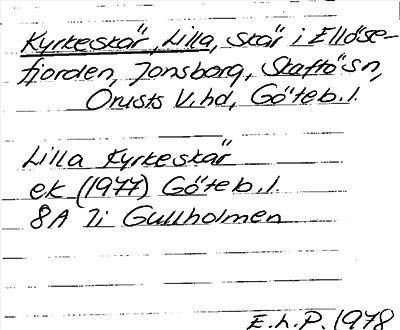 Kyrkeskär, Lilla, skär i Ellöse-
fjorden, Jonsborg, Skaftö sn,
Orusts V. hd, Göteb. l.
Lilla Kyrkeskär
ek (1977) Göteb. l.
8A 7i Gullholmen
E.h.P. 1978